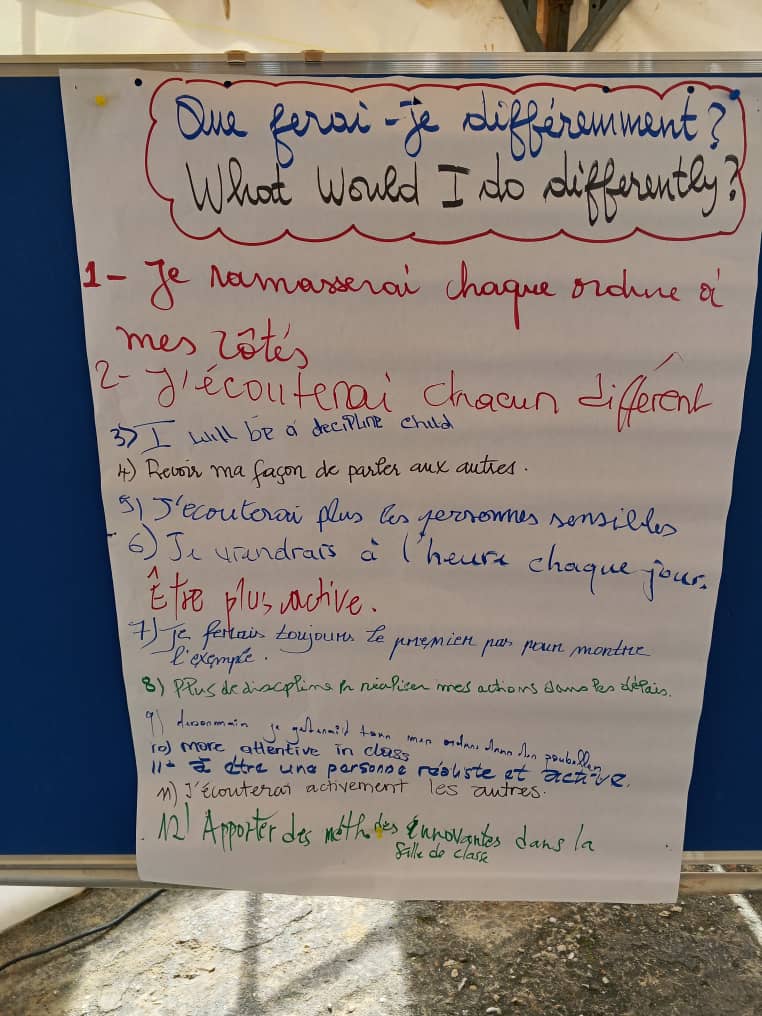 Que ferai-je différemment?
What Would I do differently?
1- Je ramasserai chaque ordure à
mes côtés
2- J'écouterai chacun différent
3) I will be a decipline child
4) Revoir ma façon de parler aux autres.
5) J'ecouterai plus les personnes sensibles
6) Je viendrais à l'heure chaque jour.
Être plus active.
7) Je ferais toujours le premier pas pour montre
l'exemple.
8) Plus de discipline à réaliser mes actions dans les délais.
9) je mes ordures dans les poubelles
10) more attentive in class
11- à être une personne réaliste et active.
11) J'écouterai activement les autres.
12) Apporter des méthodes innovantes dans la
salle de classe